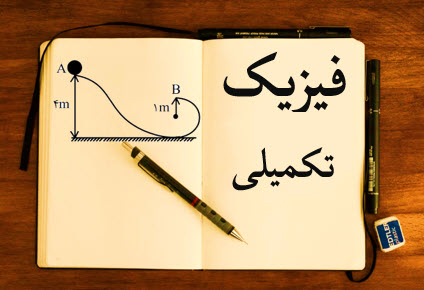 A
B
۴m
۱m
فیزیک
تکمیلی